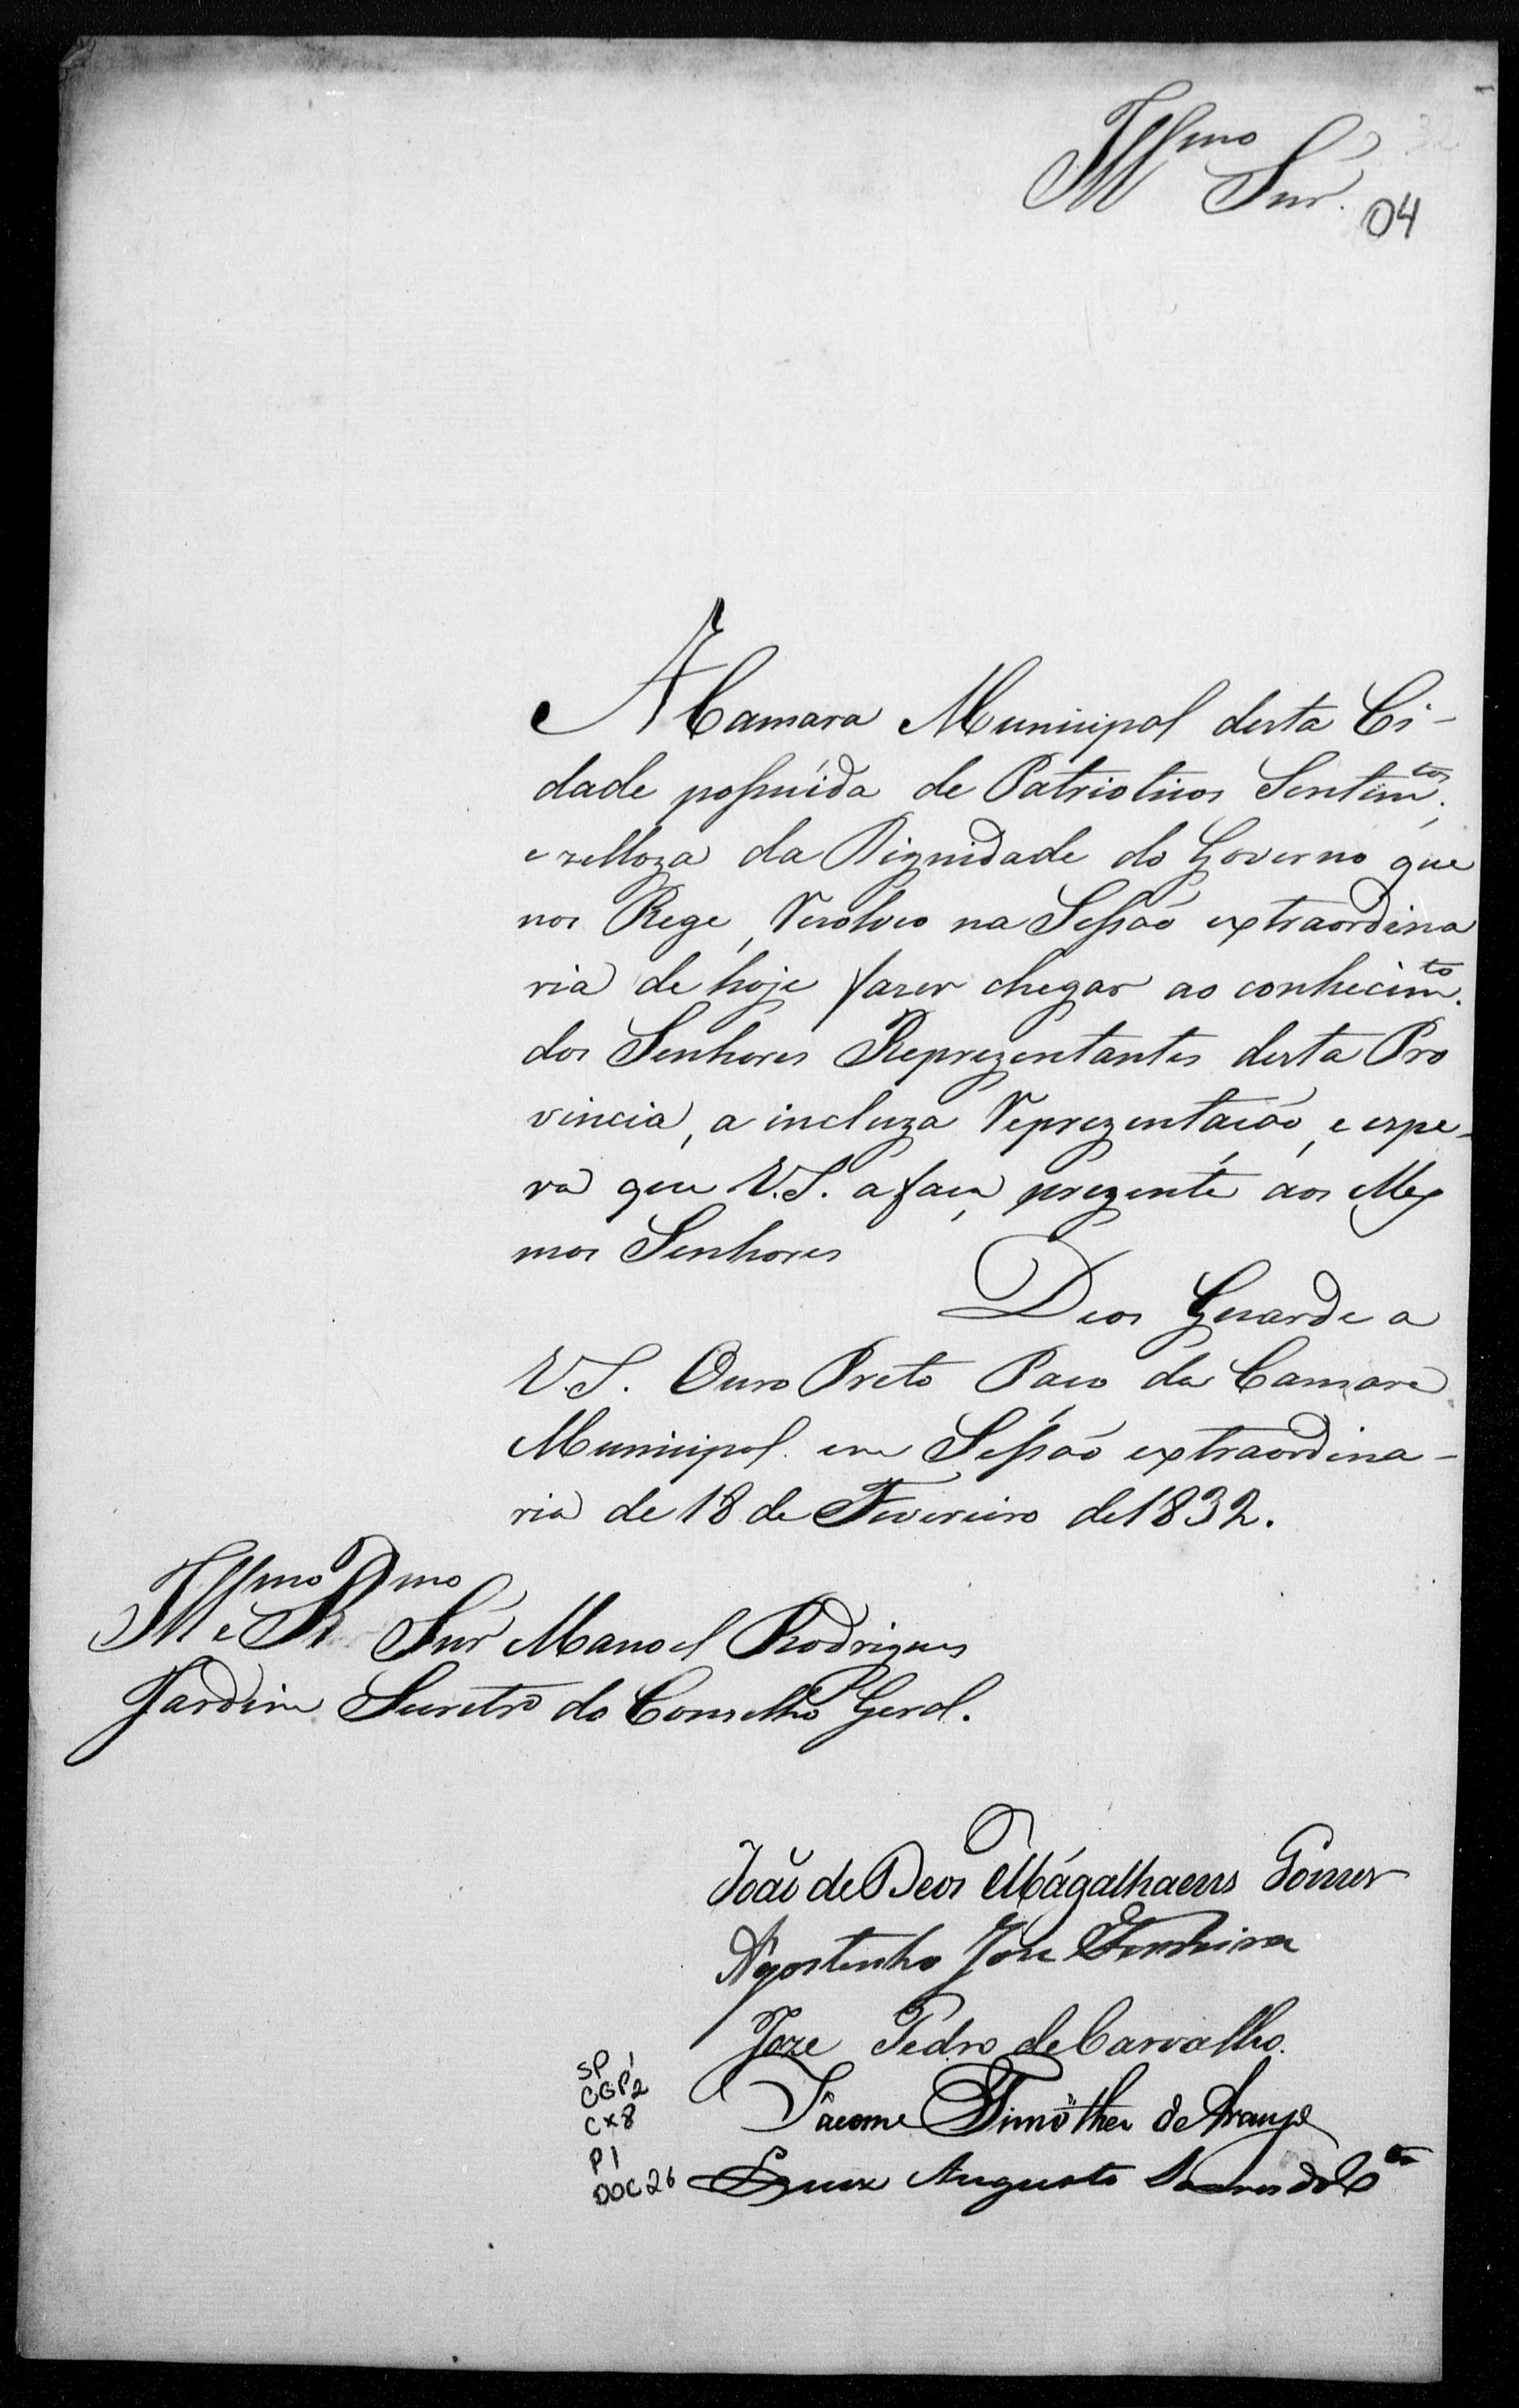 Illmo Snr.
32
04
A Camara Municipal desta Ci-
dade possuida de Patrioticos Sentimtos,
e zelloza da Dignidade do Governo que
nos Rege, resolveo na Sessaõ extraordina
ria de hoje fazer chegar ao conhecimto.
dos Senhores Reprezentantes desta Pro
vincia, a incluza reprezentaçaõ, e espe-
ra que V.S. a faça prezente aos Mes
mos Senhores
Deos Guarde a
V.S. Ouro Preto Paço da Camara
Municipal em Sessaõ extraordina-
ria de 18 de Fevereiro de 1832.
Illmo e Rmo Snr Manoel Rodrigues
Jardim Secretro do Conselho Geral.
João de Deos Magalhaens Gomes
Agostinho Joze Ferreira
Joze Pedro de Carvalho.
Jácome Timótheo de Araujo
Luiz Augusto Soares do Cto
SP
CGP12
CX8
P1
DOC 26